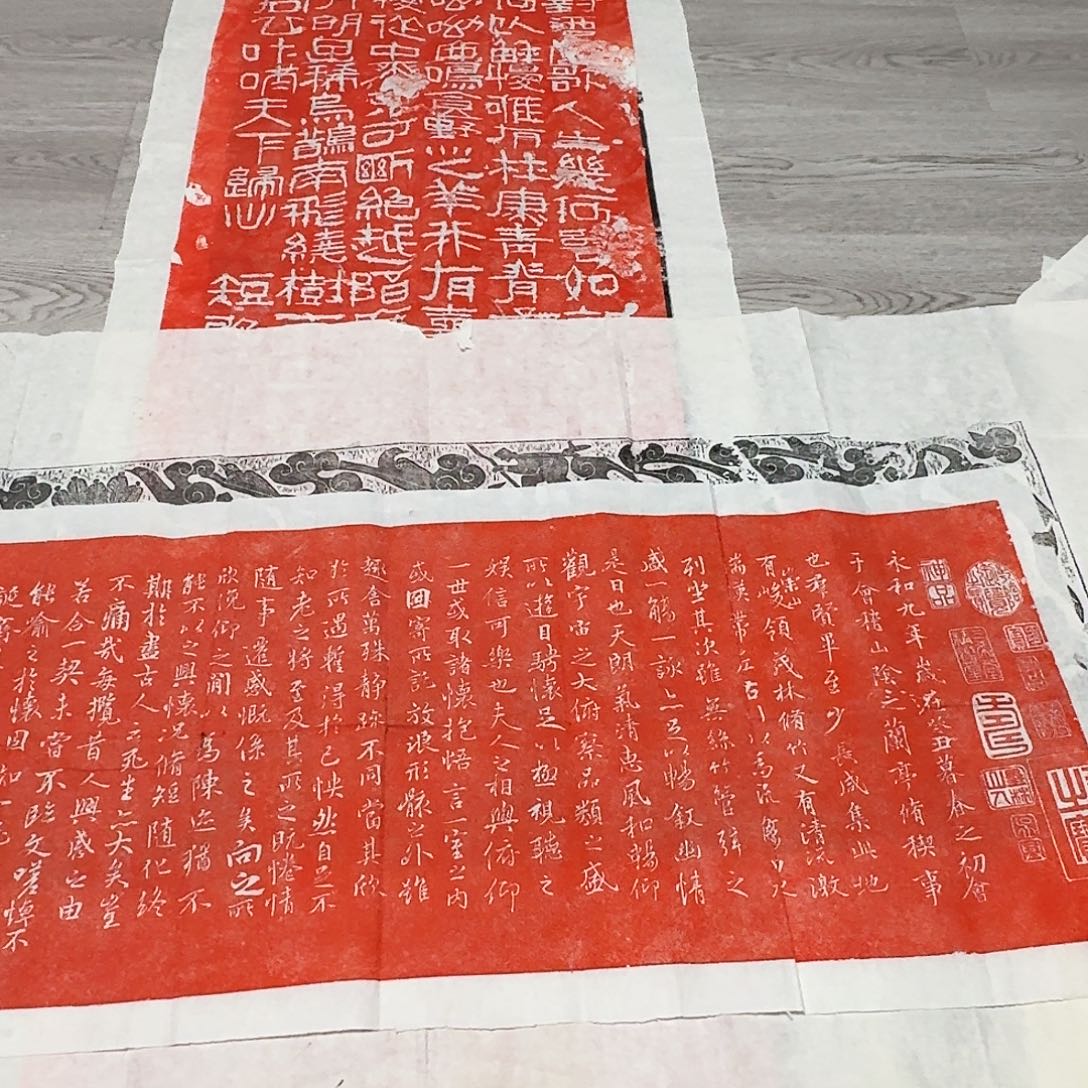 對酒歌人生幾何如
何以解憂唯有杜康青青
呦呦鹿鳴食野之苹我有嘉
憂從中來不可斷絕越陌度
月明星稀烏鵲南飛繞樹
公吐哺天下歸心 短歌
神品
永和九年歲在癸丑暮春之初會
于會稽山陰之蘭亭脩稧事
也群賢畢至少長咸集此地
有崇山峻領茂林脩竹又有清流激
湍暎帶左右引以為流觴曲水
列坐其次雖無絲竹管弦之
盛一觴一詠亦足以暢敘幽情
是日也天朗氣清惠風和暢仰
觀宇宙之大俯察品類之盛
所以遊目騁懷足以極視聽之
娛信可樂也夫人之相與俯仰
一世或取諸懷抱悟言一室之內
或因寄所託放浪形骸之外雖
趣舍萬殊靜躁不同當其欣
於所遇暫得於己怏然自足不
知老之將至及其所之既惓情
隨事遷感慨係之矣向之所
欣俛仰之閒以為陳迹猶不
能不以之興懷況脩短隨化終
期於盡古人云死生亦大矣豈
不痛哉每攬昔人興感之由
若合一契未嘗不臨文嗟悼不
能喻之於懷固知一死